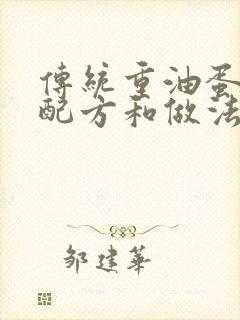 傳統重油蛋
配方和做法
鄒建華